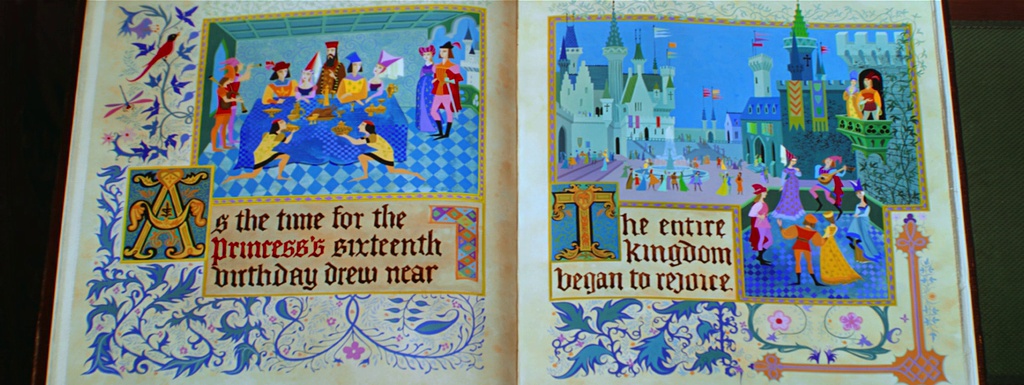 As the time for the
Princess's sixteenth
birthday drew near
The entire
kingdom
began to rejoice.